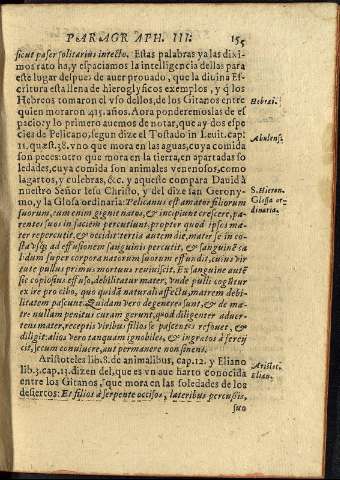 PARAGRAPH. III. 155
sicut paser solitarius intecto. Estas palabras ya las dixi
mos rato ha, y espaciamos la intelligencia dellas para
este lugar despues de auer prouado, que la diuina Es-
critura esta llena de hieroglyficos exemplos, y q̃ los
Hebreos tomaron el vso dellos, de los Gitanos entre
Hebrai.
quien moraron 415. años. Aora ponderemoslas de es
pacio: y lo primero auemos de notar, que ay dos espe
cies de Pelicano, segun dize el Tostado in Leuit. cap.
Abulens.
11. quæst. 38. vno que mora en las aguas, cuya comida
son peces: otro que mora en la tierra, en apartadas so
ledades, cuya comida son animales venenosos, como
lagartos, y culebras, &c. y aqueste compara Dauid à
nuestro Señor Iesu Christo, y del dize san Gerony-
S. Hieron.
mo, y la Glosa ordinaria: Pelicanus est amator filiorum
Glossa or
suorum, cum enim gignit natos, & incipiunt crescere, pa-
dinaria.
rentes suos in faciem percutiunt. propter quod ipsos ma-
ter repercutit, & occidit: tertia autem die, mater se in co-
sta vsq; ad effusionem sanguinis percutit, & sanguinē ca
lidum super corpora natorum suorum effundit, cuius vir
tute pullus primus mortuus reuiuiscit. Ex sanguine autē
sic copiosius effuso, debilitatur mater, vnde pulli cogūtur
ex ire pro cibo, quo quidā naturali affectu, matrem debi-
litatem pascunt. Quidam vero degeneres sunt, & de ma-
tre nullam penitus curam gerunt, quod diligenter aduer-
tens mater, receptis viribus filios se pascentes refouet, &
diligit: alios vero tanquam ignobiles, & ingratos à se reij
cit, secum conuiuere, aut permanere non sinens.
Aristoteles lib. 8. de animalibus, cap. 12. y Eliano
Aristot.
lib. 3. cap. 23. dizen del, que es vn aue harto conocida
Elian.
entre los Gitanos, que mora en las soledades de los
desiertos: Et filios à serpente occisos, lateribus percussis,
suo